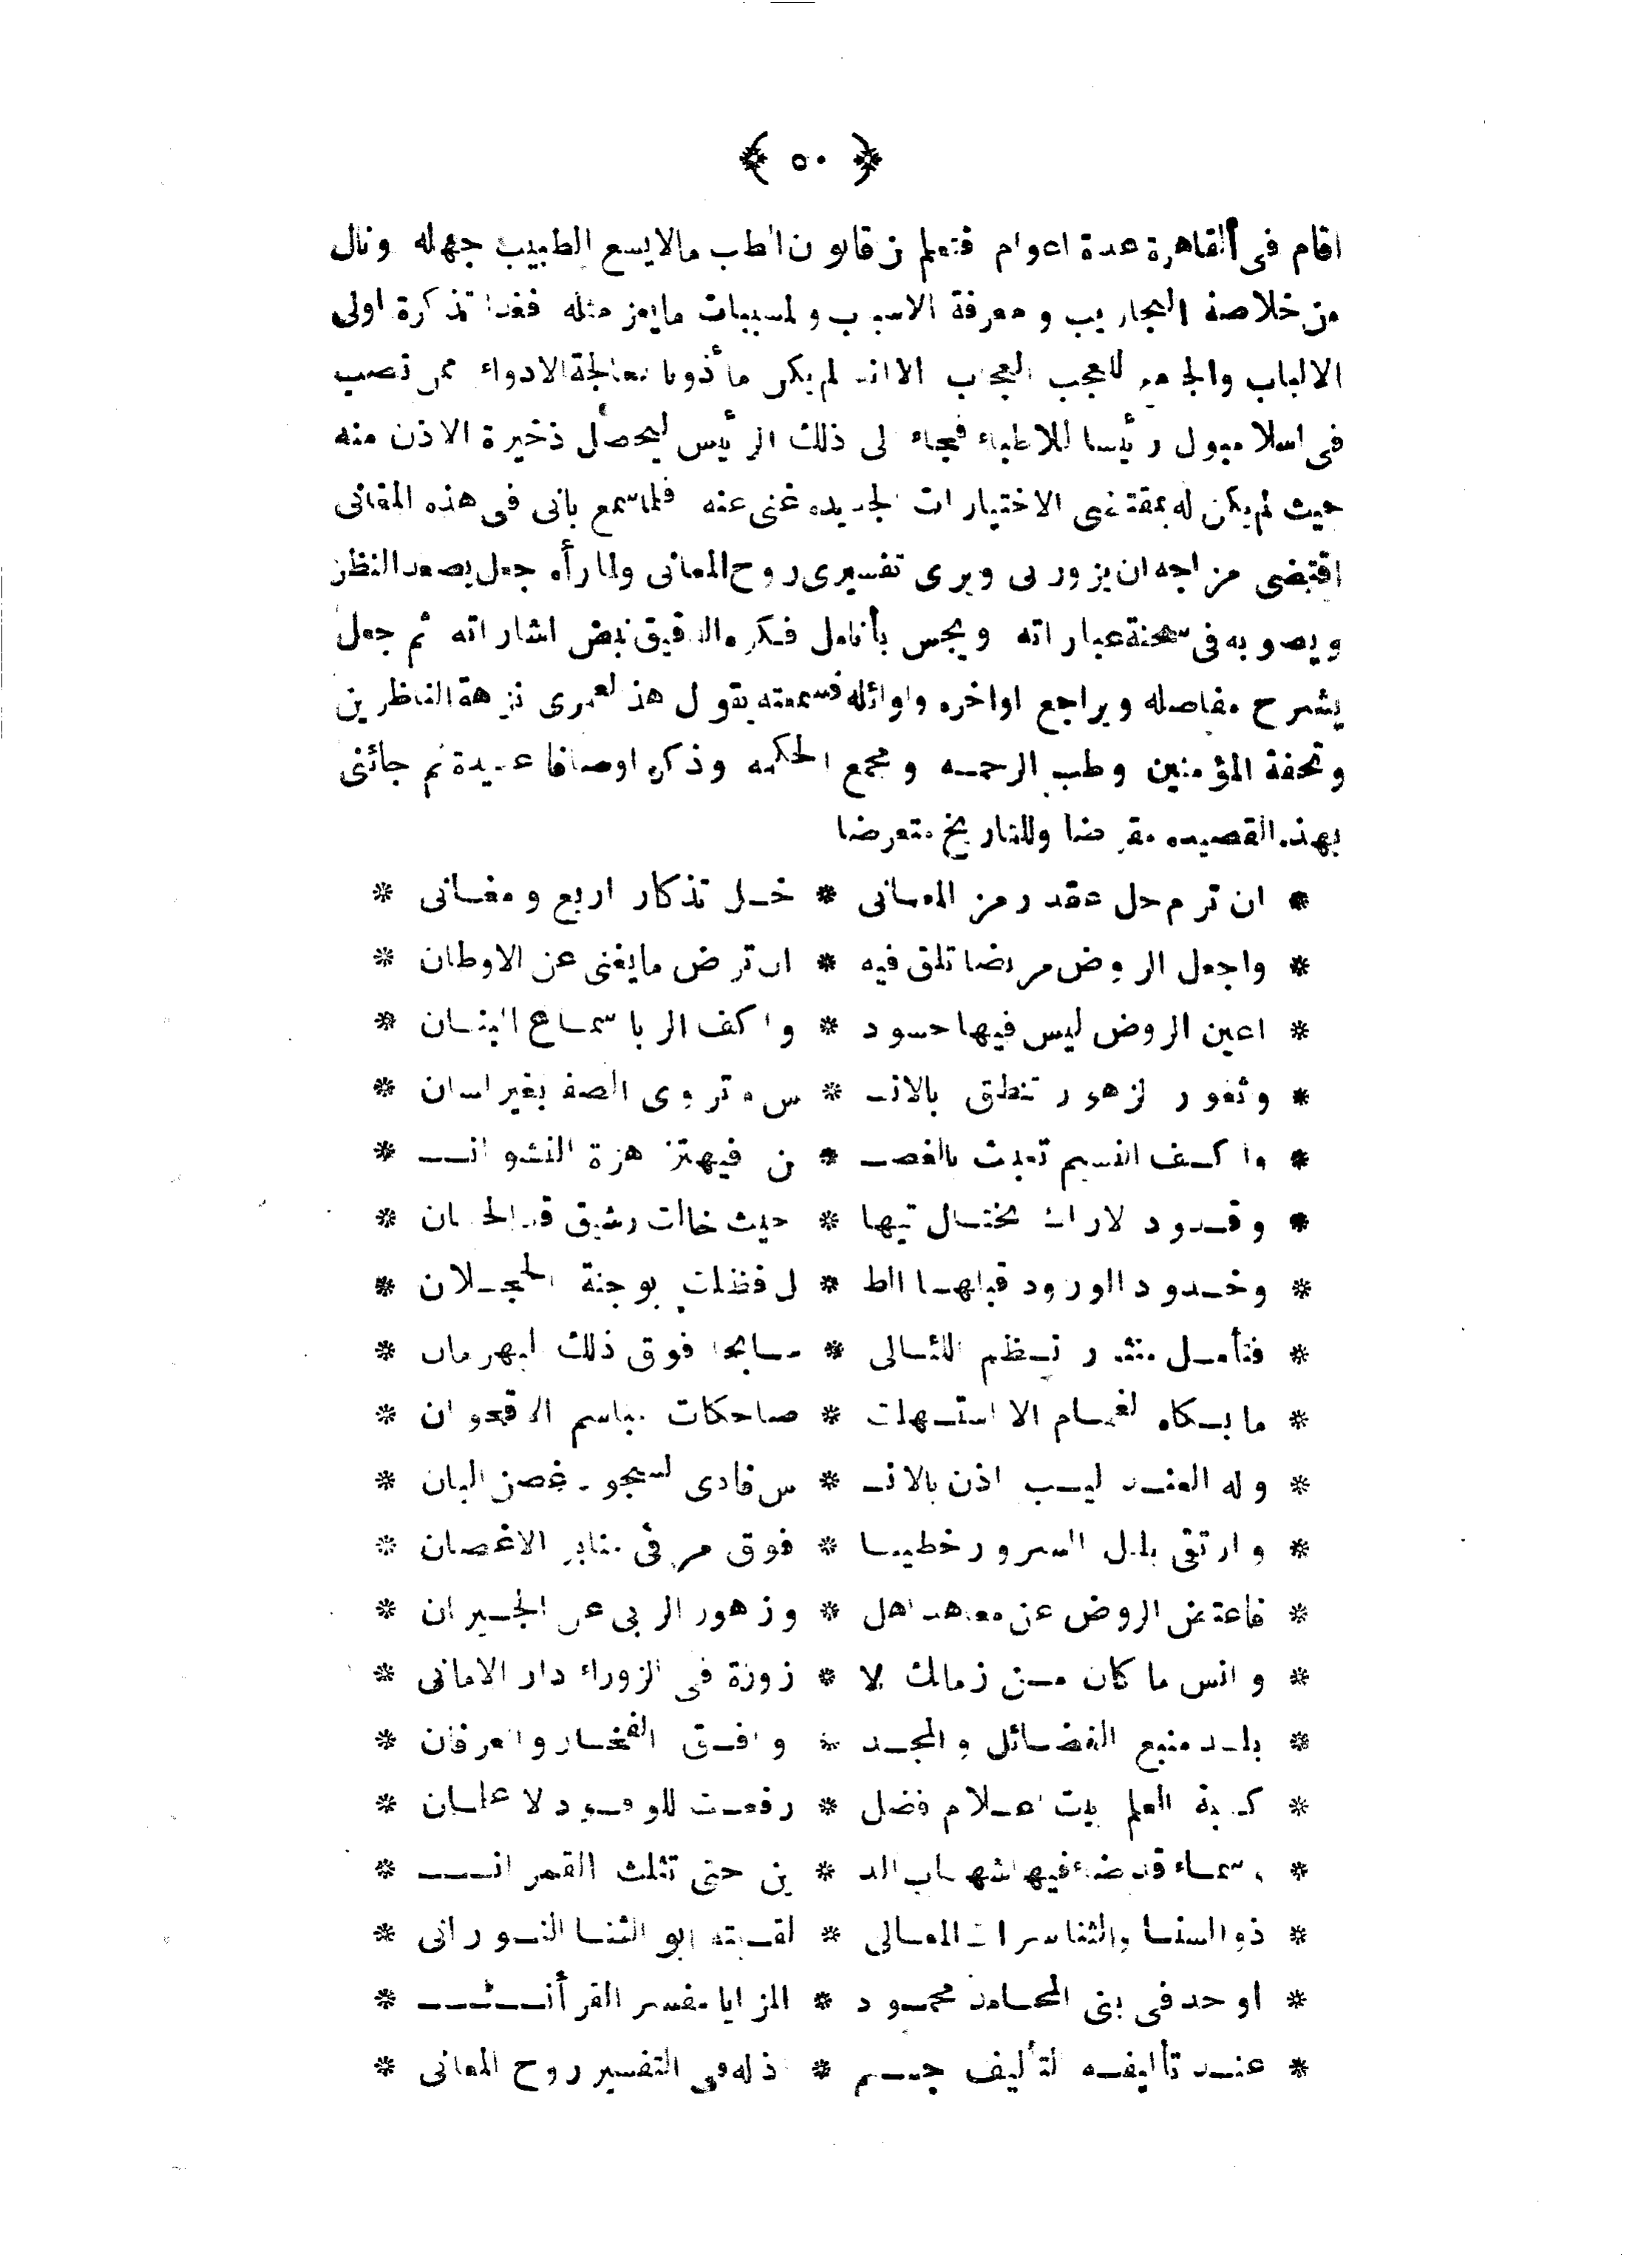 ﴿ ٥٠ ﴾
اقام فى القاهرة عدة اعوام فتعلم من قانون الطب مالايسع الطبيب جهله ونال
من خلاصة التجاريب ومعرفة الاسباب والمسببات مايعز مثله فغدا تذكرة اولى
الالباب والجامع للعجب العجاب الا انه لم يكن مأذونا بمعالجة الادواء ممن نصب
فى اسلامبول رئيسا للاطباء فجاء الى ذلك الرئيس ليحصل ذخيرة الاذن منه
حيث لم يكن له بمقتضى الاختيارات الجديده غنى عنه فلما سمع بانى فى هذه المغانى
اقتضى مزاجه ان يزورنى ويرى تفسيرى روح المعانى ولما رأه جعل يصعد النظر
ويصوبه فى سحنة عباراته ويجس بأنامل فكره الدقيق نبض اشاراته ثم جعل
يشرح مفاصله ويراجع اواخره واوائله فسمعته يقول هذا لعمرى نزهة الناظرين
وتحفة المؤمنين وطب الرحمه ومجمع الحكمه وذكر اوصافا عديدة ثم جائنى
بهذه القصيده مقرضا وللتاريخ متعرضا
* ان ترم حل عقد رمز المعانى * خل تذكار اربع ومغانى *
* واجعل الروض مربضا تلق فيه * ان ترض مايغنى عن الاوطان *
* اعين الروض ليس فيها حسود * واكف الربا سماع البنان *
* وثغور الزهور تنطق بالانـ * س وتروى الصفا بغير لسان *
* واكف النسيم تعبث بالغصـ * ن فيهتز هزة النشوان *
* وقدود الاراك تختال تيها * حيث خالت رشيق قد الحسان *
* وخدود الورود قبلها الط * ل فظلت بوجنة الخجلان *
* فتأمل منثور نظم اللئالى * سابحا فوق ذلك البهرمان *
* ما بكاه الغمام الا استهلت * ضاحكات مباسم الاقحوان *
* وله العندليب اذن بالانـ * س فادى السجود غصن البان *
* وارتقى بلبل السرور خطيبا * فوق مرقى منابر الاغصان *
* فاعتض الروض عن معاهد اهل * وزهور الربى عن الجيران *
* وانس ما كان من زمانك الا * زورة فى الزوراء دار الامانى *
* بلد منبع الفضائل والمجد * وافق الفخار والعرفان *
* كعبة العلم بيت اعلام فضل * رفعت للوفود لا علمان *
* وسماء قد ضاء فيها شهاب الد * ين حتى تثلث القمران *
* ذو السنا والثنا سراة المعالى * لقبته ابو الثنا النورانى *
* اوحد فى بنى المحامد محمود * المزايا مفسر القرأن *
* عند تأليفه لتأليف جسم * ذله فى التفسير روح المعانى *